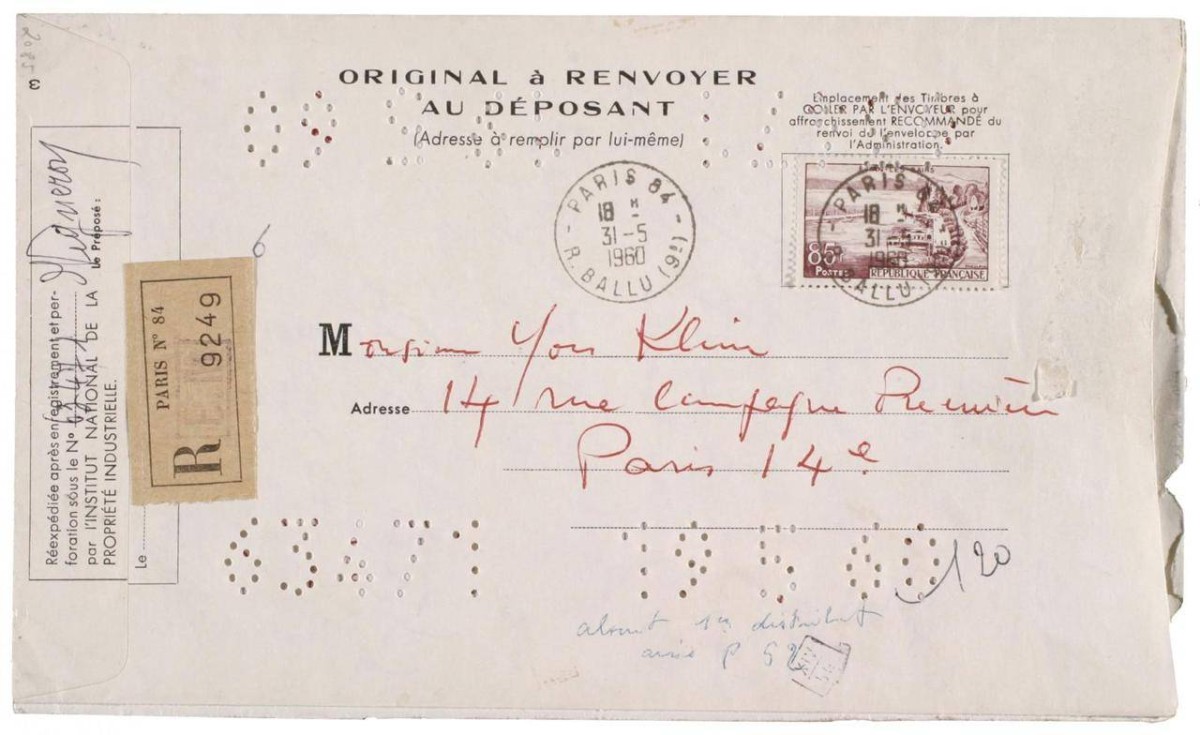 ORIGINAL à RENVOYER
AU DÉPOSANT
(Adresse à remplir par lui-même)
Emplacement des Timbres à
COLLER PAR L'ENVOYEUR pour
affranchissement RECOMMANDÉ du
renvoi de l'enveloppe par
l'Administration.
PARIS 84
18 H
31-5
1960
R. BALLU (9e)
PARIS 84
18 H
31-5
1960
R. BALLU (9e)
85F
POSTES
RÉPUBLIQUE FRANÇAISE
Monsieur Yves Klein
Adresse 14 rue Campagne Première
Paris 14e
63471 19 5 60
120
absent 1re distribut
avisé P
Réexpédiée après enregistrement et per-
foration sous le No 63471
par l'INSTITUT NATIONAL DE LA
PROPRIÉTÉ INDUSTRIELLE.
Le
Le Préposé :
R
PARIS No 84
9249